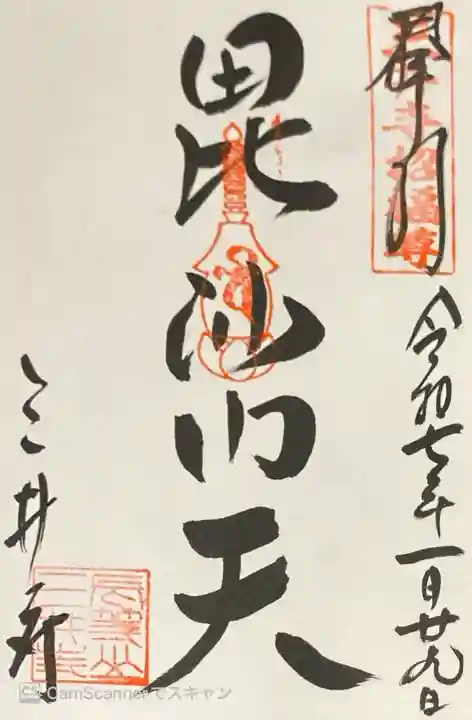 奉拝
令和七年一月廿九日
毘沙門天
三井寺
CS CamScannerでスキャン